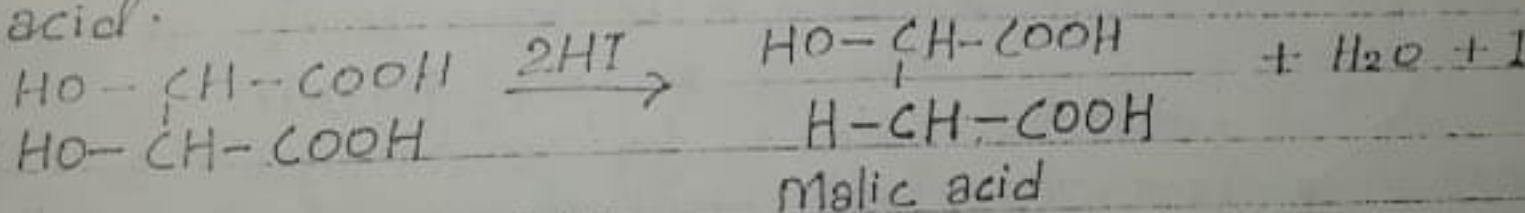 acid.
HO - CH - COOH 2HI → HO - CH - COOH + H2O + I
HO - CH - COOH H - CH - COOH
Malic acid